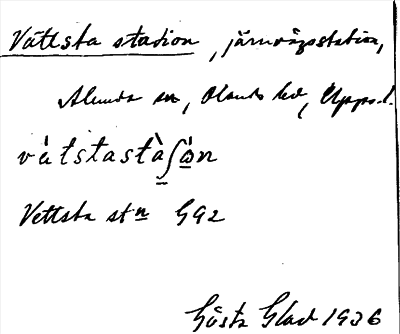 Vättsta station, järnvägsstation,
Alunda sn, Olands hd, Upps. l.
vàtstastàʃón
Vettsta stn G92
Gösta Glad 1936